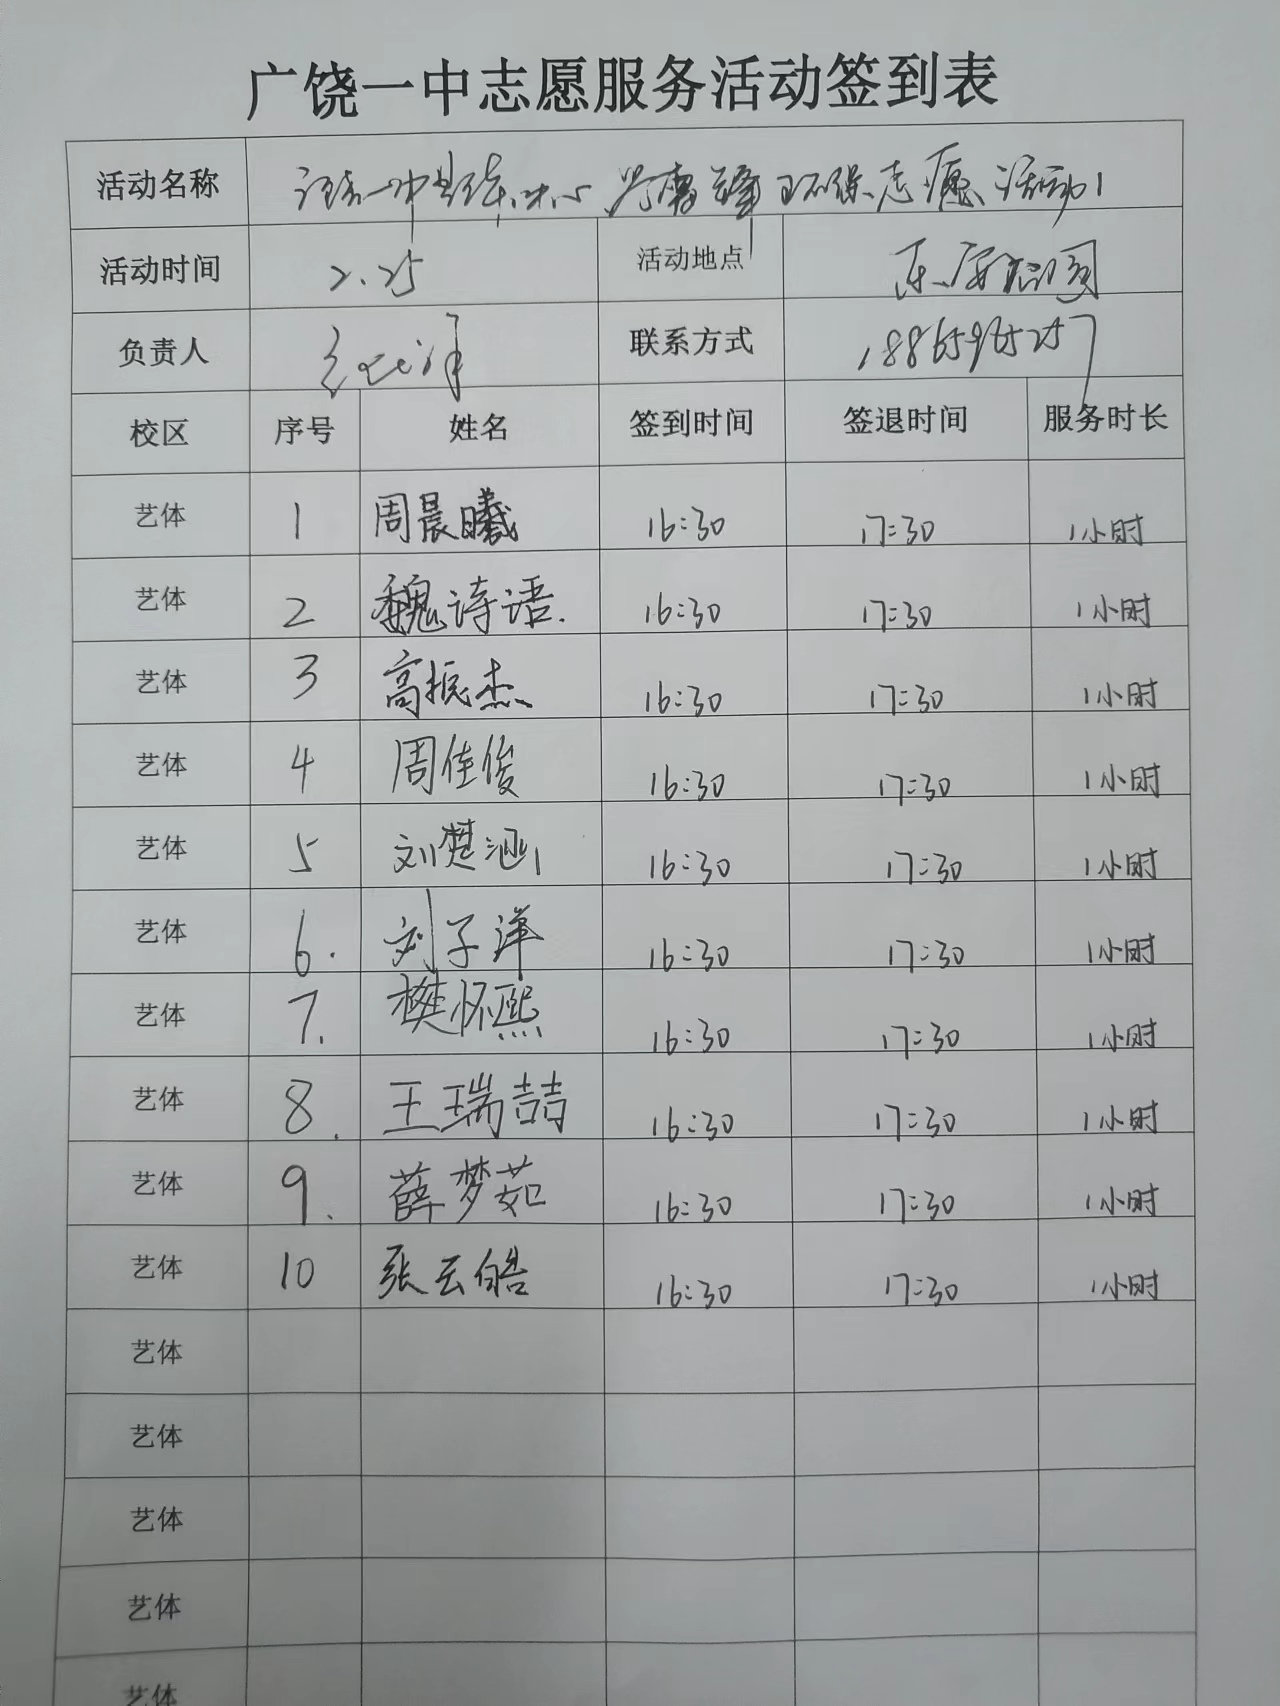 广饶一中志愿服务活动签到表
活动名称 一中 学雷锋环保志愿活动
活动时间 2.25 活动地点
负责人 联系方式
校区 序号 姓名 签到时间 签退时间 服务时长
艺体 1 周晨曦 16:30 17:30 1小时
艺体 2 魏诗语. 16:30 17:30 1小时
艺体 3 高振杰 16:30 17:30 1小时
艺体 4 周佳俊 16:30 17:30 1小时
艺体 5 刘楚涵 16:30 17:30 1小时
艺体 6. 刘子洋 16:30 17:30 1小时
艺体 7. 樊怀熙 16:30 17:30 1小时
艺体 8. 王瑞喆 16:30 17:30 1小时
艺体 9. 薛梦茹 16:30 17:30 1小时
艺体 10 张云皓 16:30 17:30 1小时
艺体
艺体
艺体
艺体
艺体